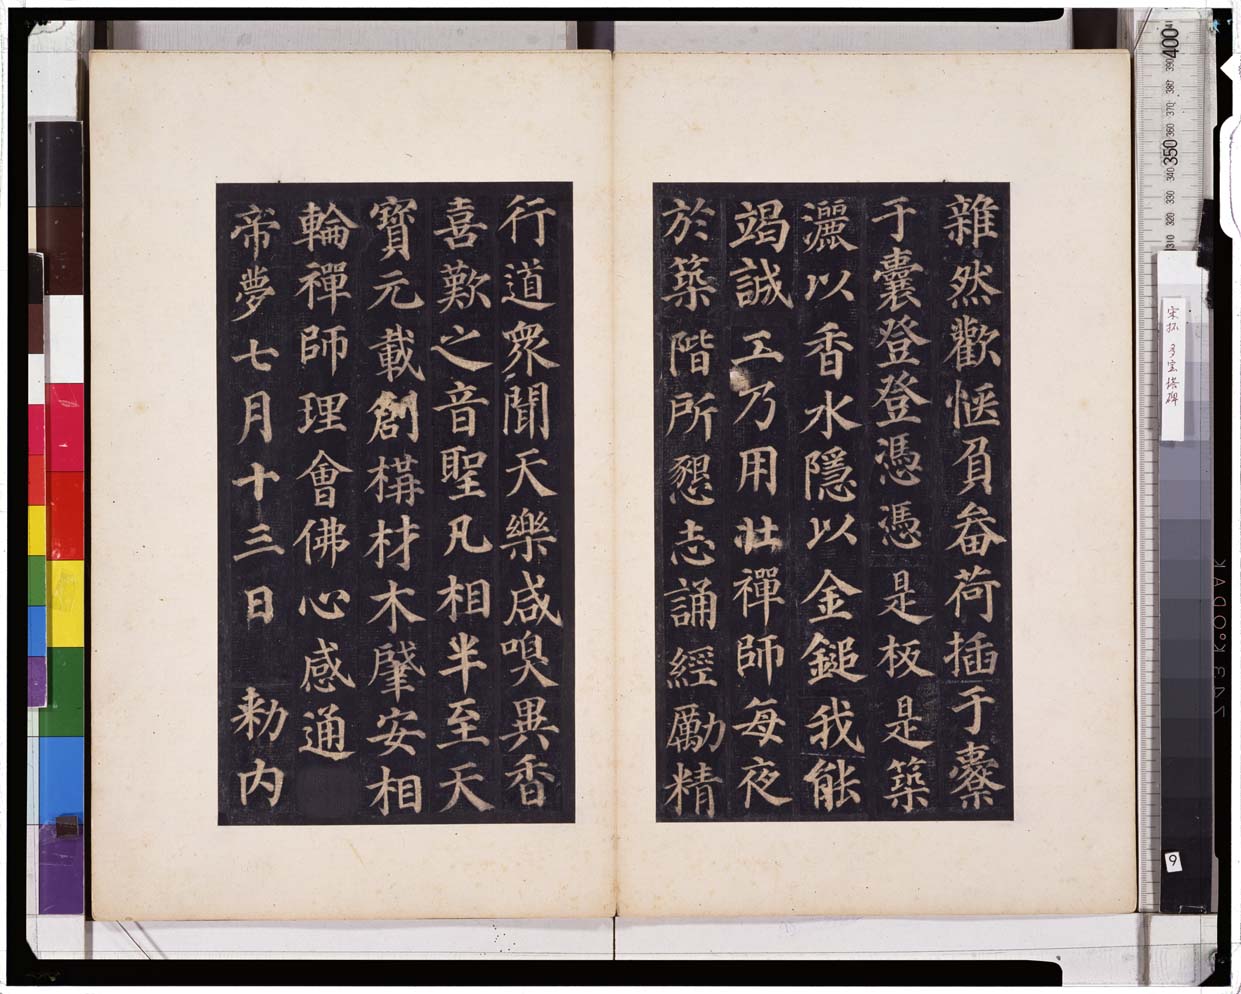 雜然歡愜負畚荷插于橐
于囊登登憑憑是板是築
灑以香水隱以金鎚我能
竭誠工乃用壯禪師每夜
於築階所懇志誦經勵精
行道衆聞天樂咸嗅異香
喜歎之音聖凡相半至天
寶元載創構材木肇安相
輪禪師理會佛心感通
帝夢七月十三日 勑内
宋拓 多宝塔碑
400
390
380
370
360
350
340
330
320
310
9
KODAK